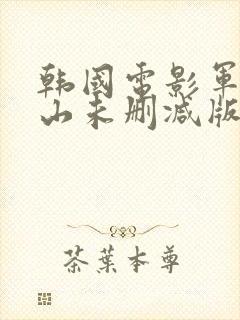 韩國電影軍
山未删减版
茶葉本尊